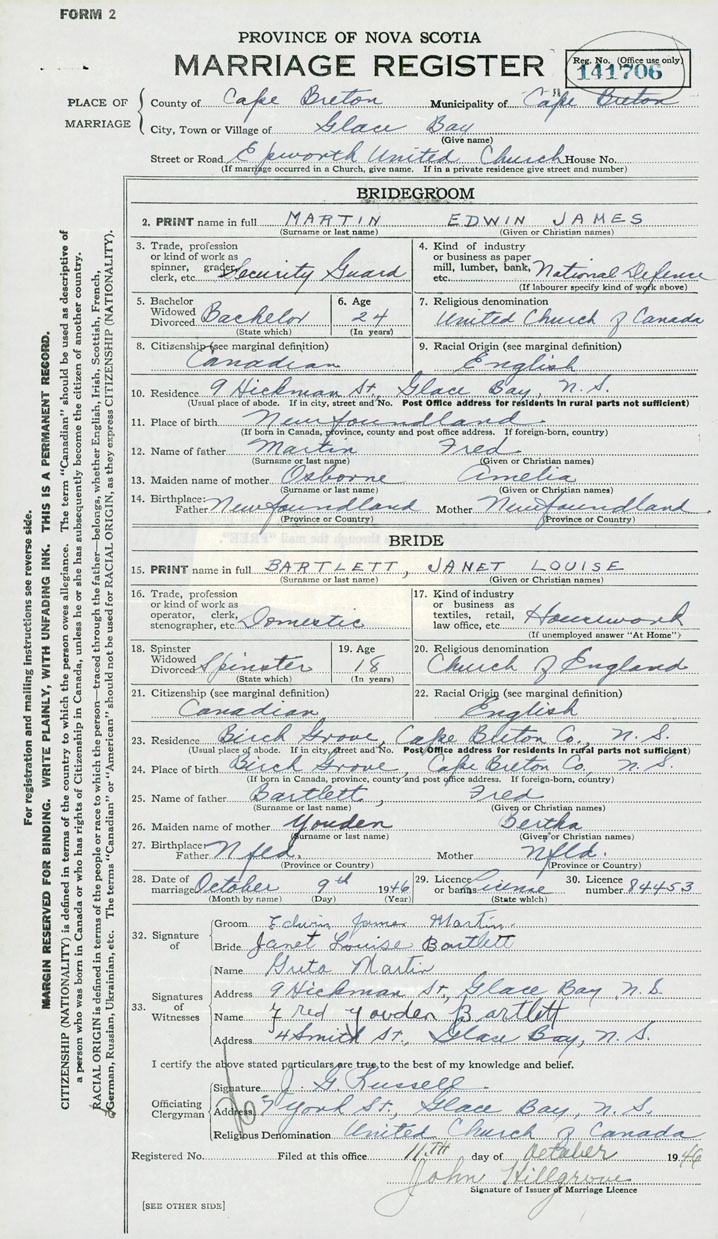 FORM 2
PROVINCE OF NOVA SCOTIA
MARRIAGE REGISTER
Reg. No. (Office use only)
141706
PLACE OF MARRIAGE
County of Cape Breton Municipality of Cape Breton
City, Town or Village of Glace Bay
(Give name)
Street or Road Epworth United Church House No.
(If marriage occurred in a Church, give name. If in a private residence give street and number)
BRIDEGROOM
2. PRINT name in full MARTIN EDWIN JAMES
(Surname or last name) (Given or Christian names)
3. Trade, profession or kind of work as spinner, grader, clerk, etc. Security Guard
4. Kind of industry or business as paper mill, lumber, bank, etc. National Defence
(If labourer specify kind of work above)
5. Bachelor Widowed Divorced Bachelor
(State which)
6. Age 24
(In years)
7. Religious denomination
United Church of Canada
8. Citizenship (see marginal definition)
Canadian
9. Racial Origin (see marginal definition)
English
10. Residence 9 Hickman St., Glace Bay, N.S.
(Usual place of abode. If in city, street and No. Post Office address for residents in rural parts not sufficient)
11. Place of birth Newfoundland
(If born in Canada, province, county and post office address. If foreign-born, country)
12. Name of father Martin Fred
(Surname or last name) (Given or Christian names)
13. Maiden name of mother Osborne Amelia
(Surname or last name) (Given or Christian names)
14. Birthplace: Father Newfoundland Mother Newfoundland
(Province or Country) (Province or Country)
BRIDE
15. PRINT name in full BARTLETT, JANET LOUISE
(Surname or last name) (Given or Christian names)
16. Trade, profession or kind of work as operator, clerk, stenographer, etc. Domestic
17. Kind of industry or business as textiles, retail, law office, etc. Housework
(If unemployed answer "At Home")
18. Spinster Widowed Divorced Spinster
(State which)
19. Age 18
(In years)
20. Religious denomination
Church of England
21. Citizenship (see marginal definition)
Canadian
22. Racial Origin (see marginal definition)
English
23. Residence Birch Grove, Cape Breton Co., N.S.
(Usual place of abode. If in city, street and No. Post Office address for residents in rural parts not sufficient)
24. Place of birth Birch Grove, Cape Breton Co., N.S.
(If born in Canada, province, county and post office address. If foreign-born, country)
25. Name of father Bartlett, Fred
(Surname or last name) (Given or Christian names)
26. Maiden name of mother Youden Bertha
(Surname or last name) (Given or Christian names)
27. Birthplace: Father Nfld. Mother Nfld.
(Province or Country) (Province or Country)
28. Date of marriage October 9th 1946
(Month by name) (Day) (Year)
29. Licence or banns License
(State which)
30. Licence number 84453
32. Signature of
Groom Edwin James Martin
Bride Janet Louise Bartlett
33. Signatures of Witnesses
Name Greta Martin
Address 9 Hickman St., Glace Bay N.S.
Name Fred Youden Bartlett
Address 4 Smith St., Glace Bay, N.S.
I certify the above stated particulars are true to the best of my knowledge and belief.
Officiating Clergyman
Signature J. G. Russell
Address 7 York St., Glace Bay, N.S.
Religious Denomination United Church of Canada
Registered No. Filed at this office 11TH day of October 1946
John Hillgrove
Signature of Issuer of Marriage Licence
[SEE OTHER SIDE]
For registration and mailing instructions see reverse side.
MARGIN RESERVED FOR BINDING. WRITE PLAINLY, WITH UNFADING INK. THIS IS A PERMANENT RECORD.
CITIZENSHIP (NATIONALITY) is defined in terms of the country to which the person owes allegiance. The term "Canadian" should be used as descriptive of
a person who was born in Canada or who has rights of Citizenship in Canada, unless he or she has subsequently become the citizen of another country.
RACIAL ORIGIN is defined in terms of the people or race to which the person—traced through the father—belongs, whether English, Irish, Scottish, French,
German, Russian, Ukrainian, etc. The terms "Canadian" or "American" should not be used for RACIAL ORIGIN, as they express CITIZENSHIP (NATIONALITY).